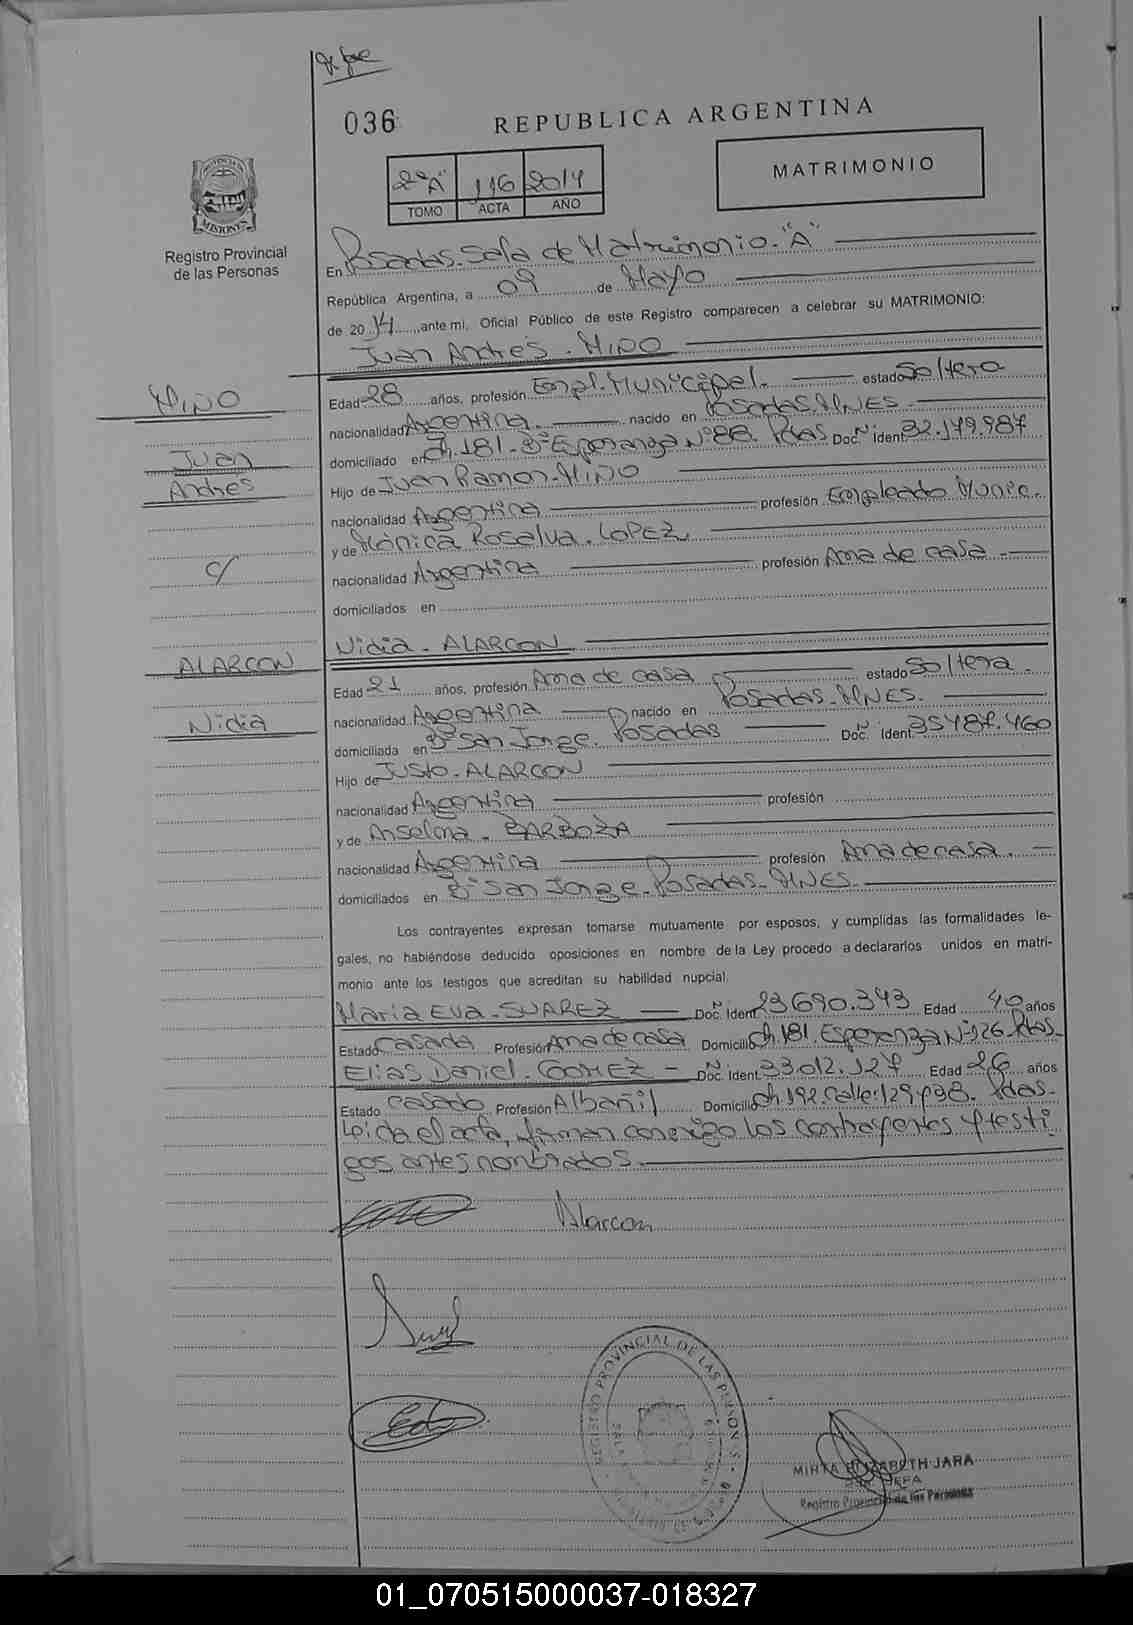 036
REPUBLICA ARGENTINA
MATRIMONIO
2º"A" 116 2014
TOMO ACTA AÑO
PROVINCIA DE
MISIONES
Registro Provincial
de las Personas
En Posadas. Sala de Matrimonio. "A"
República Argentina, a 09 de Mayo
de 2014, ante mi, Oficial Público de este Registro comparecen a celebrar su MATRIMONIO:
Juan Andrés. MIÑO
MIÑO
Juan
Andrés
c/
ALARCON
Nidia
Edad 28 años, profesión Empl. Municipal. estado Soltero
nacionalidad Argentina. nacido en Posadas. MNES.
domiciliado en Ch. 181. Bº Esperanza Nº 88. Pdas Doc. Nº Ident 32.179.987
Hijo de Juan Ramon. MIÑO
nacionalidad Argentina profesión Empleado Munic.
y de Mónica Rosalva. LOPEZ
nacionalidad Argentina profesión Ama de casa.
domiciliados en
Nidia. ALARCON
Edad 21 años, profesión Ama de casa estado Soltera.
nacionalidad Argentina nacido en Posadas. MNES.
domiciliada en Bº San Jorge. Posadas Doc. Nº Ident 35487.460
Hijo de Justo. ALARCON
nacionalidad Argentina profesión
y de Anselma. BARBOZA
nacionalidad Argentina profesión Ama de casa.
domiciliados en Bº San Jorge. Posadas. MNES.
Los contrayentes expresan tomarse mutuamente por esposos, y cumplidas las formalidades le-
gales, no habiéndose deducido oposiciones en nombre de la Ley procedo a declararlos unidos en matri-
monio ante los testigos que acreditan su habilidad nupcial.
Maria Eva. SUAREZ Doc. Nº Ident 23690.343 Edad 40 años
Estado Casada Profesión Ama de casa Domicilio Ch. 181. Esperanza Nº 126. Pdas.
Elias Daniel. GOMEZ Doc. Nº Ident. 33.012.127 Edad 26 años
Estado casado Profesión Albañil Domicilio Ch. 192. Calle: 129. Pdas.
Leida el acta, firman conmigo los contrayentes y testi
gos antes nombrados.
Alarcon
REGISTRO PROVINCIAL DE LAS PERSONAS
MIRTA ELIZABETH JARA
JEFA
Registro Provincial de las Personas
01_070515000037-018327